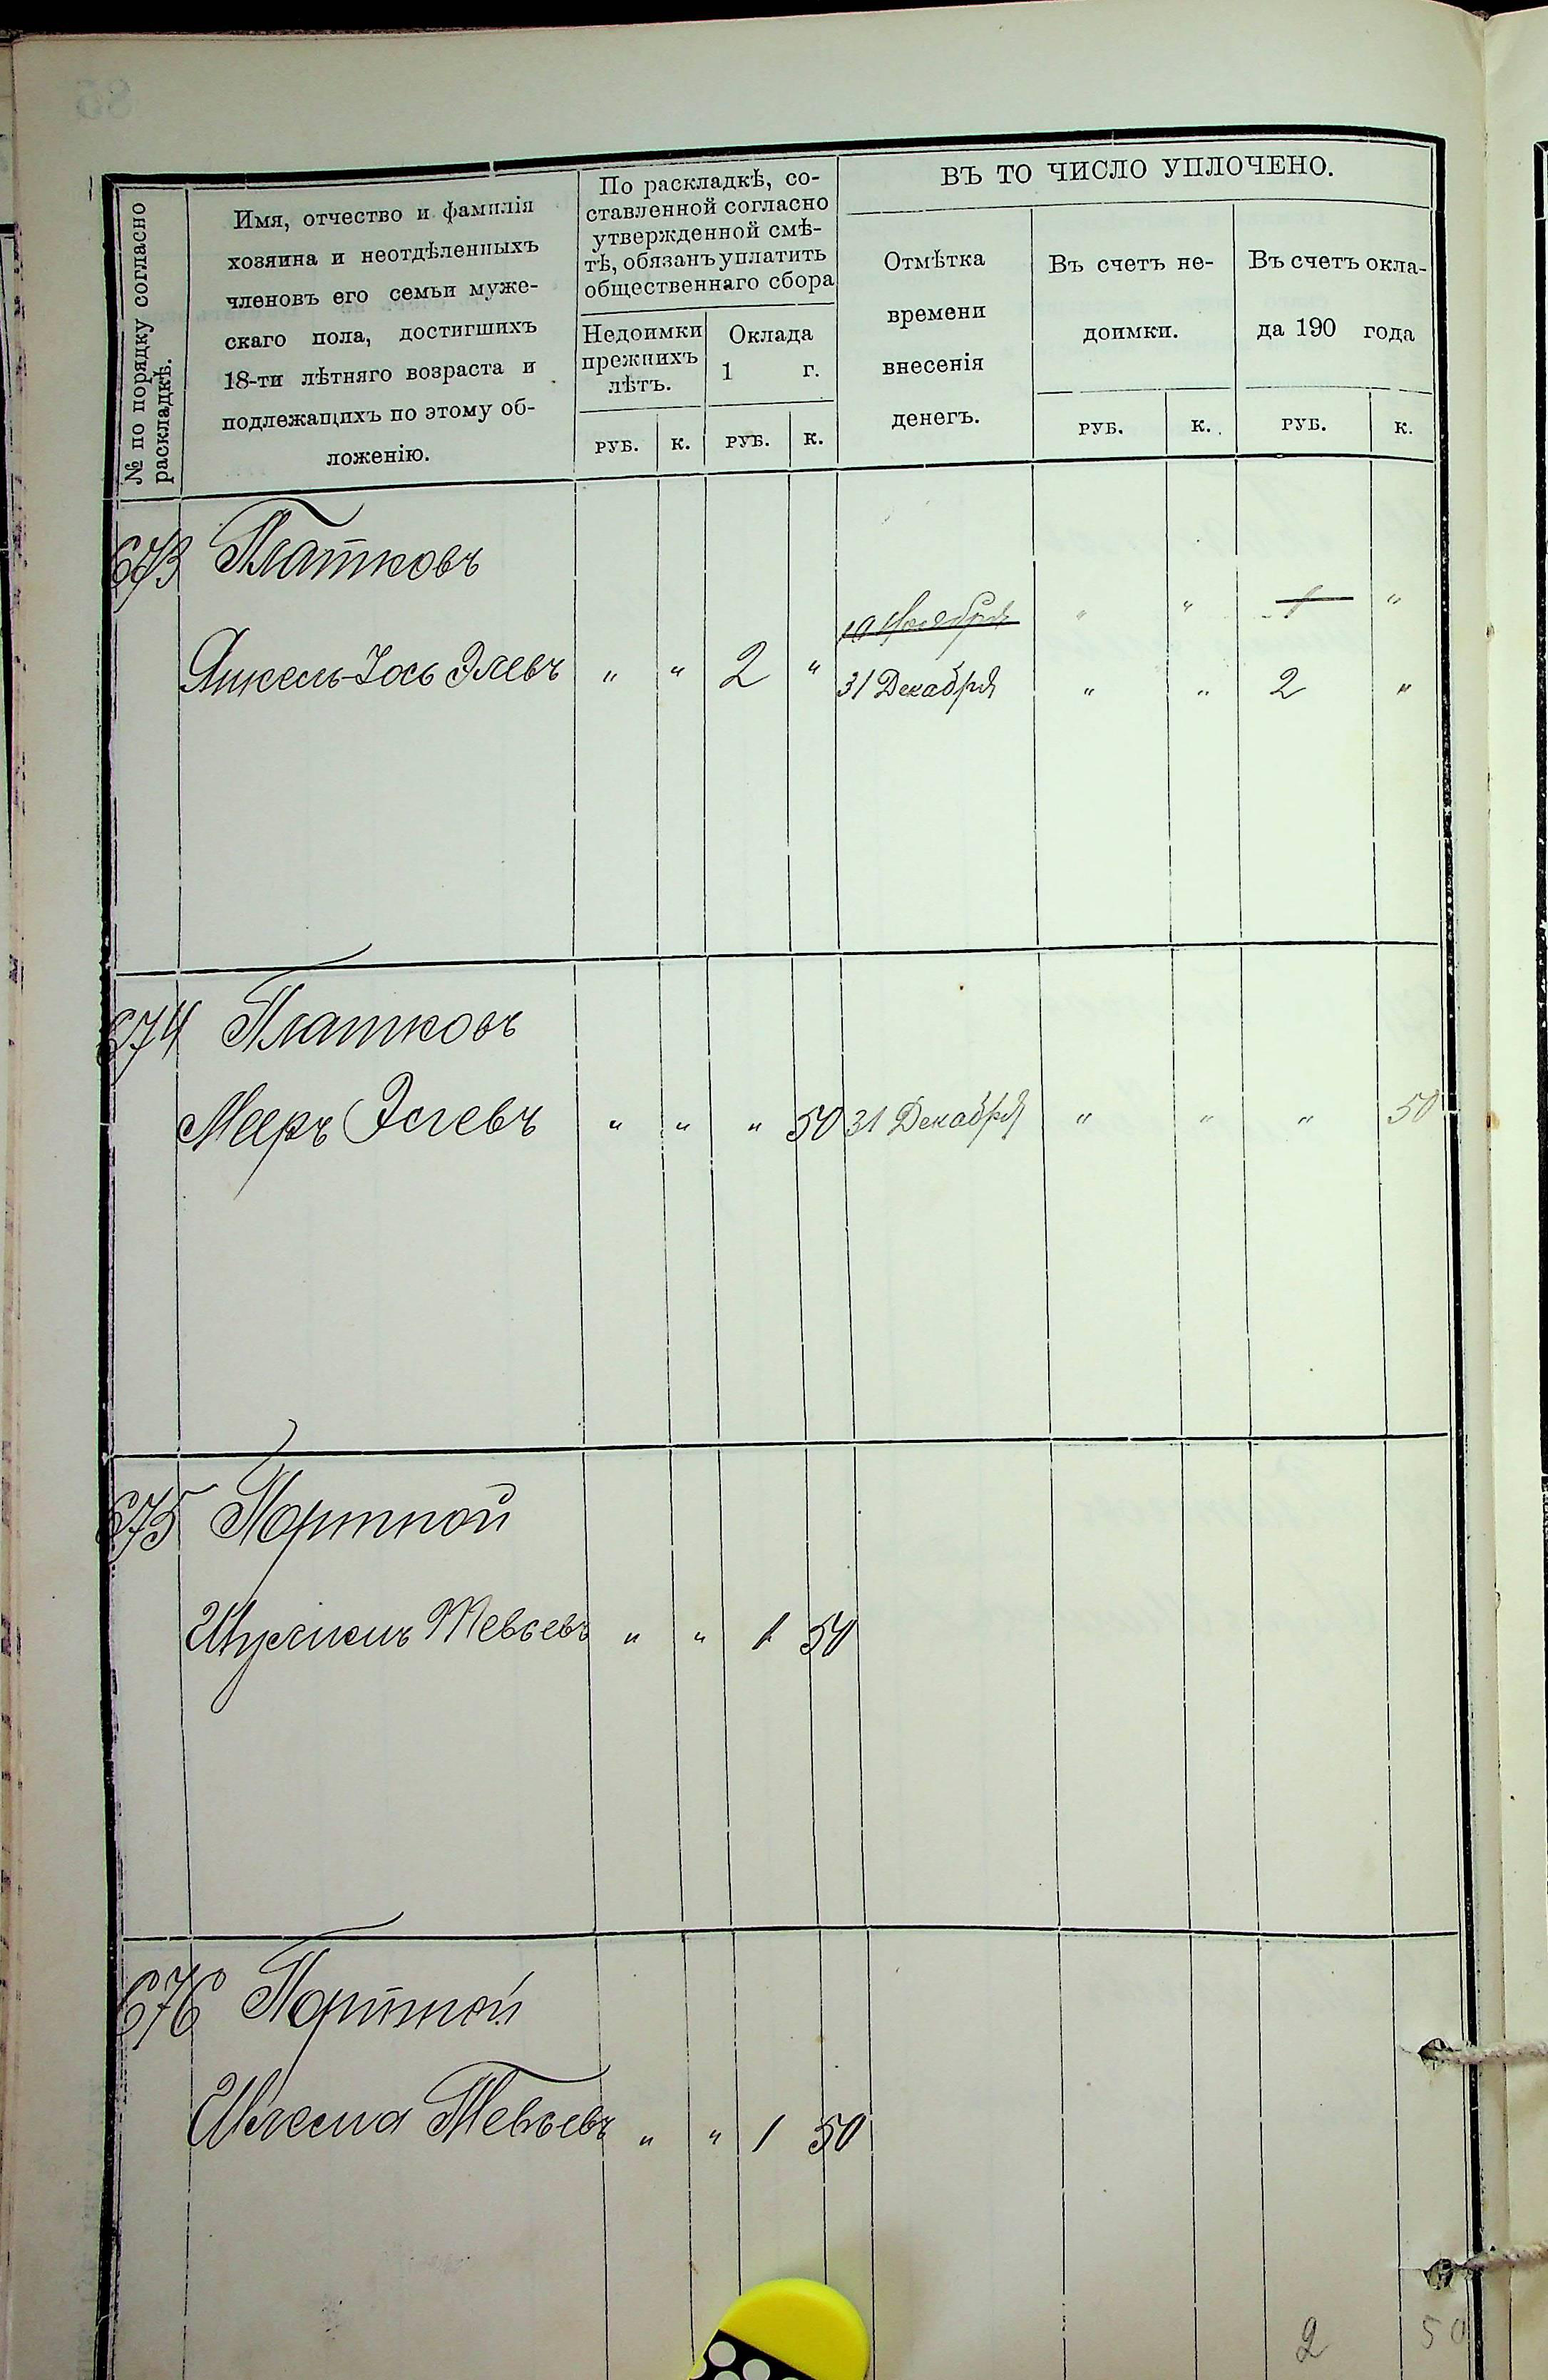 ВЪ ТО ЧИСЛО УПЛОЧЕНО.
№ по порядку согласно
раскладкѣ.
Имя, отчество и фамилія
хозяина и неотдѣленныхъ
членовъ его семьи муже-
скаго пола, достигшихъ
18-ти лѣтняго возраста и
подлежащихъ по этому об-
ложенію.
По раскладкѣ, со-
ставленной согласно
утвержденной смѣ-
тѣ, обязанъ уплатить
общественнаго сбора
Недоимки
прежнихъ
лѣтъ.
Оклада
1 г.
Отмѣтка
времени
внесенія
денегъ.
Въ счетъ не-
доимки.
Въ счетъ окла-
да 190 года
РУБ. К. РУБ. К. РУБ. К. РУБ. К.
673 Платковъ
10 Ноября " " 1 "
Янкель-Іось Элевъ " " 2 " 31 Декабря " " 2 "
674 Платковъ
Мееръ Элевъ " " " 50 31 Декабря " " " 50
675 Портной
Тевьевъ " " 1 50
676 Портной
Тевьевъ " " 1 50
2 50